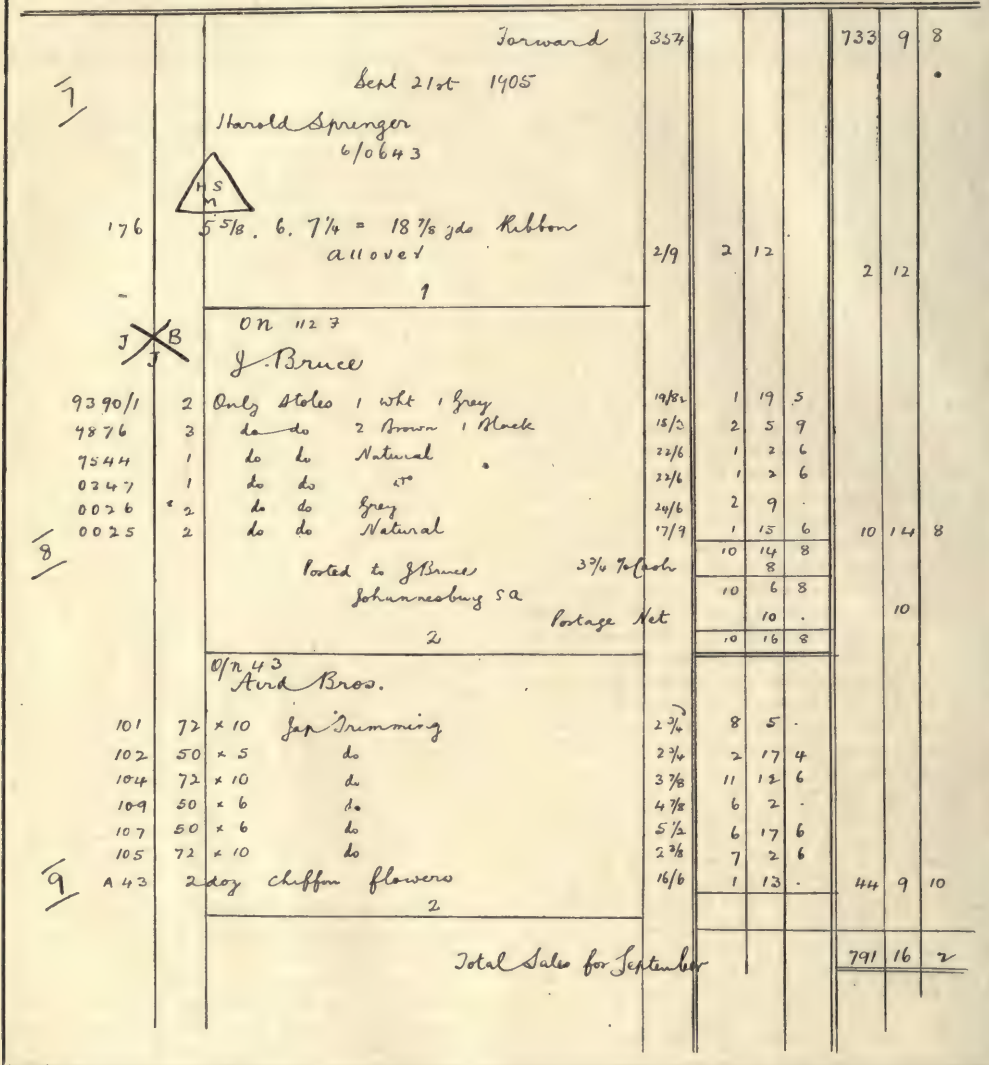 Forward 354 733 9 8
Sept 21st 1905
7
Harold Sprenger
6/0643
H S
M
176 5 5/8. 6. 7 1/4 = 18 7/8 yds Ribbon
allover 2/9 2 12
2 12
1
On 1127
J B
J
J. Bruce
9390/1 2 Only Stoles 1 wht 1 Grey 19/8½ 1 19 5
9876 3 do do 2 Brown 1 Black 15/3 2 5 9
7544 1 do do Natural 22/6 1 2 6
0347 1 do do 22/6 1 2 6
0026 2 do do Grey 24/6 2 9 .
0025 2 do do Natural 17/9 1 15 6 10 14 8
8
10 14 8
Posted to J Bruce 3 3/4 % Cash 8
Johannesburg SA 10 6 8
Postage Net 10 . 10
2 10 16 8
O/n 43
Aird Bros.
101 72 x 10 Jap Trimming 2 3/4 8 5 .
102 50 x 5 do 2 3/4 2 17 4
104 72 x 10 do 3 7/8 11 12 6
109 50 x 6 do 4 7/8 6 2 .
107 50 x 6 do 5 1/2 6 17 6
105 72 x 10 do 2 3/8 7 2 6
9 A 43 2 doz chiffon flowers 16/6 1 13 . 44 9 10
2
Total Sales for September 791 16 2